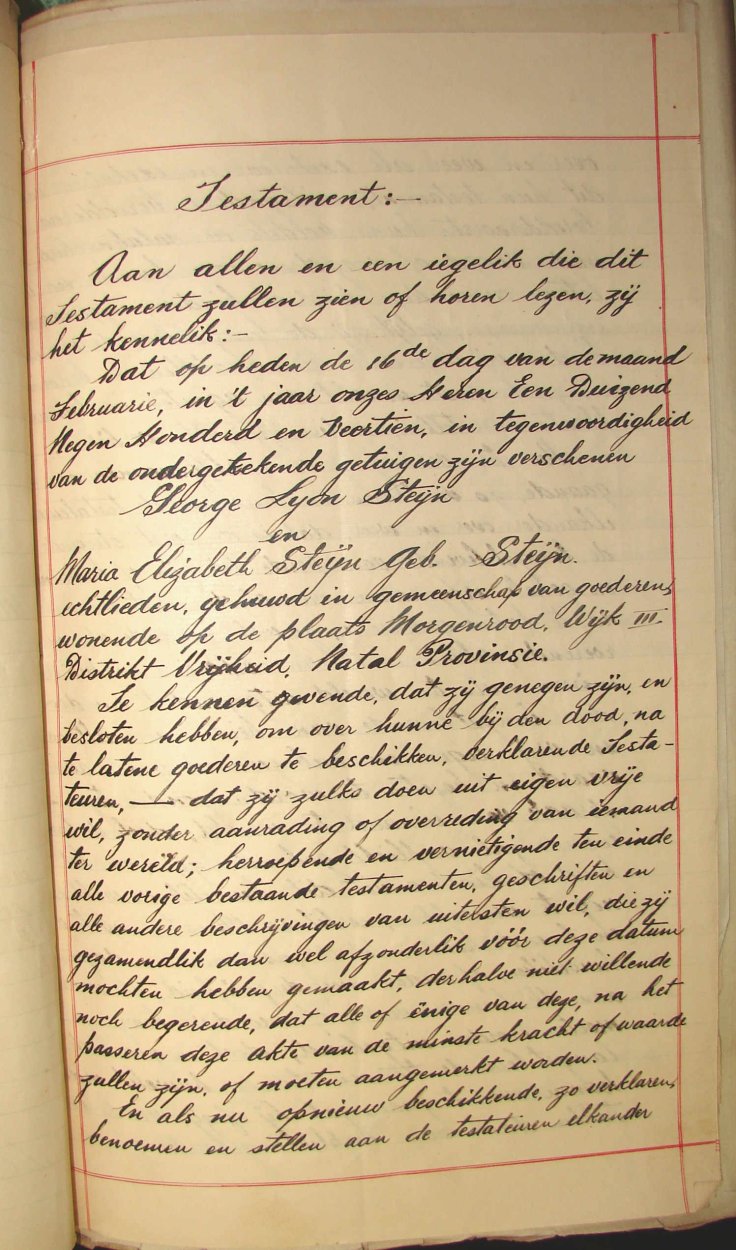 Testament:—
Aan allen en een iegelik die dit
Testament zullen zien of horen lezen, zij
het kennelik:—
Dat op heden de 16de dag van de maand
Februarie, in 't jaar onzes Heren Een Duizend
Negen Honderd en Veertien, in tegenwoordigheid
van de ondergetekende getuigen zijn verschenen
George Lyon Steijn
en
Maria Elizabeth Steijn geb. Steijn.
echtlieden, gehuwd in gemeenschap van goederen,
wonende op de plaats Morgenrood, Wijk III.
Distrikt Vrijheid, Natal Provinsie.
Te kennen gevende, dat zij genegen zijn, en
besloten hebben, om over hunne bij den dood, na
te latene goederen te beschikken, verklarende Testa-
teuren, — dat zij zulks doen uit eigen vrije
wil, zonder aanrading of overreding van iemand
ter wereld; herroepende en vernietigende ten einde
alle vorige bestaande testamenten, geschriften en
alle andere beschrijvingen van uitersten wil, die zij
gezamendlik dan wel afzonderlik vóór deze datum
mochten hebben gemaakt, derhalve niet willende
noch begerende, dat alle of enige van deze, na het
passeren deze akte van de minste kracht of waarde
zullen zijn, of moeten aangemerkt worden.
En als nu opnieuw beschikkende, zo verklaren,
benoemen en stellen aan de testateuren elkander